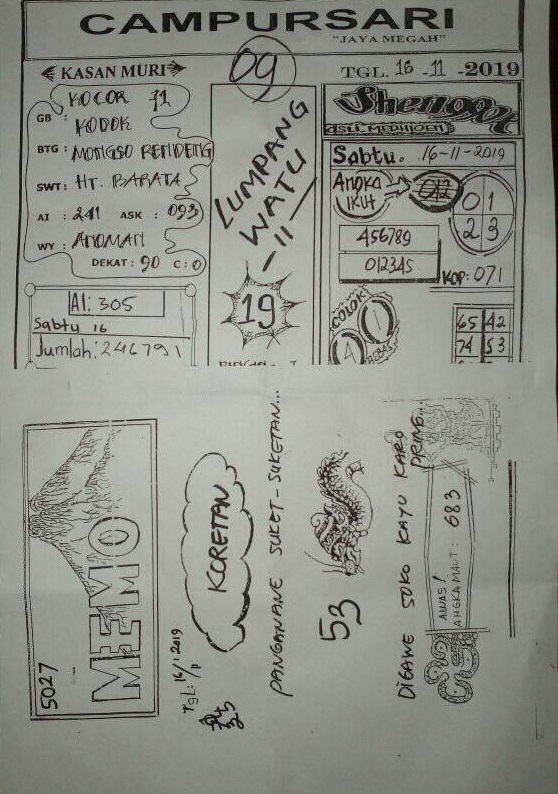 CAMPURSARI
"JAYA MEGAH"
KASAN MURI
09
TGL. 16 -11 -2019
GB : KOCOR 71
KODOK
BTG : MONGSO RENDENG
SWT : HT. BARATA
AI : 241 ASK : 093
WY : ANOMAN
DEKAT : 90 C : 0
AI: 305
Sabtu 16
Jumlah: 246791
LUMPANG
WATU
11
19
Shenggot
ASLI MEDIJOEN
Sabtu. 16-11-2019
ANGKA
IKUT
012
0 1
2 3
456789
012345
KOP: 071
COLOK
1
4
BEBAS
65 42
74 53
5027
MEMO
TgL: 16/11 2019
KORETAN
PANGANANE SUKET-SUKETAN...
53
DIGAWE SOKO KAYU KARO
PRING...
AWAS!
ANGKA MAUT: 683